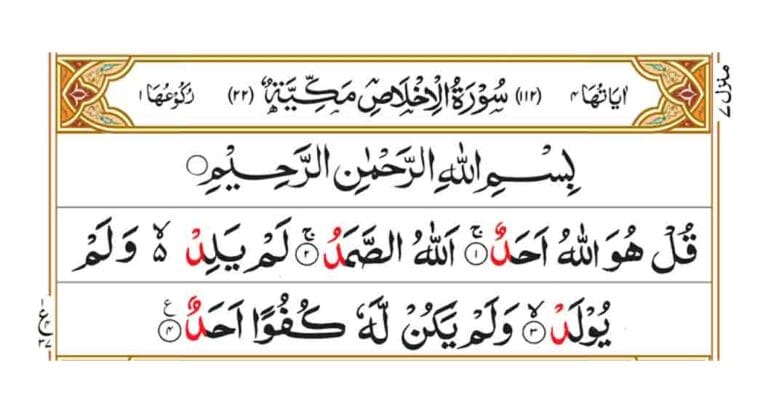 اٰيَاتُهَا ٤ (١١٢) سُوْرَةُ الْاِخْلَاصِ مَكِّيَّةٌ (٢٢) رُكُوْعُهَا ١
منزل ٧
بِسْمِ اللّٰهِ الرَّحْمٰنِ الرَّحِيْمِ ۝
قُلْ هُوَ اللّٰهُ اَحَدٌ ۚ ۝١ اَللّٰهُ الصَّمَدُ ۚ ۝٢ لَمْ يَلِدْ ۙ ٥ وَلَمْ
يُوْلَدْ ۙ ۝٣ وَلَمْ يَكُنْ لَّهٗ كُفُوًا اَحَدٌ ۝٤ ع